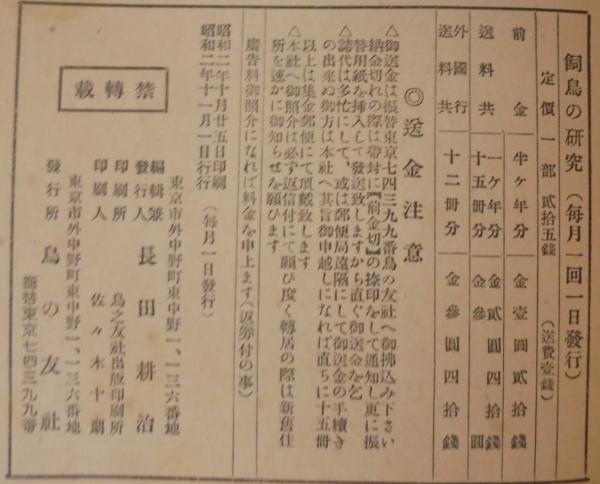 飼鳥の研究（毎月一回一日發行）
定價一部貳拾五錢（送費壹錢）
前金 半ケ年分 金壹圓貳拾錢
送料共 一ケ年分 金貳圓四拾錢
十五冊分 金參圓
外國行送料共 十二冊分 金參圓四拾錢
◎送金注意
△御送金は振替東京七四三九九番鳥の友社へ御拂込み下さい
納金切れの際は帶封に【前金切】の捺印をして通知し更に振
替用紙を挿入して發送致しますから直ぐ御送金を乞
△誌代は多忙にして、或は郵便局遠隔にして御送金の手續き
の出來ぬ御方は本社へ其旨御申越しになれば直ちに十五冊
以上は集金郵便にて頂戴致します
△本社へ御照介は必ず返信付にて願ひ度く轉居の際は新舊住
所を速かに御知らせを願ひます
廣告料御照介になれば料金を申上ます（返券付の事）
昭和二年十月廿五日印刷
昭和二年十一月一日發行（毎月一日發行）
禁轉載
東京市外中野町東中野一、一三六番地
編輯兼發行人 長田耕治
印刷所 鳥之友社出版印刷所
印刷人 佐々木十朔
東京市外中野町東中野一、一三六番地
發行所 鳥の友社
振替東京七四三九九番